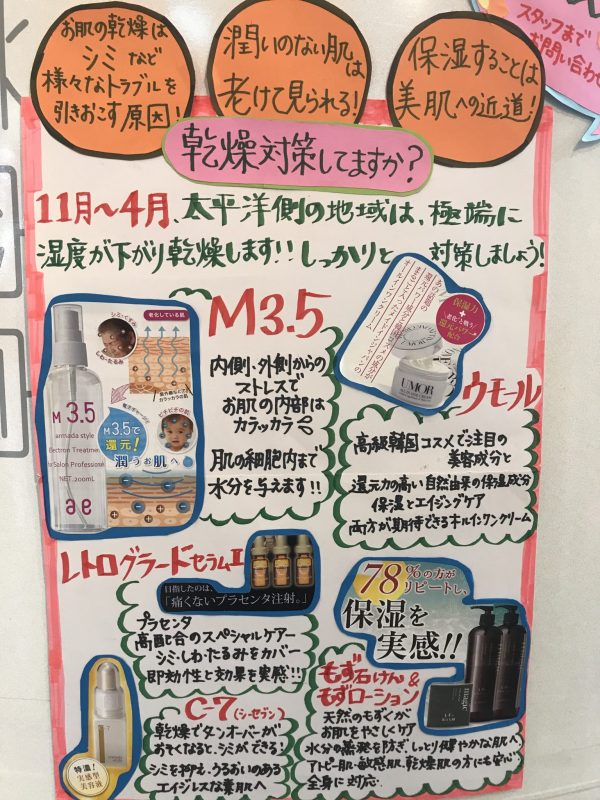 お肌の乾燥は
シミなど
様々なトラブルを
引きおこす原因!
潤いのない肌
は
老けて見られる!
保湿することは
美肌への近道!
スタッフまで
お問い合わせ
乾燥対策してますか?
11月〜4月、太平洋側の地域は、極端に
湿度が下がり乾燥します!!しっかりと 対策しましょう!
M3.5
内側、外側からの
ストレスで
お肌の内部は
カラッカラ
肌の細胞内まで
水分を与えます!!
老化している肌
シミ・くすみ
しわ・たるみ
カラカラの肌
M3.5で
還元!
ピチピチの肌
潤うお肌へ
M 3.5
armada style
Electron Treatment
Salon Professional
NET.200mL
保湿力
+
還元パワー
配合
オールインワンクリーム
UMOR
ウモール
高級韓国コスメで注目の
美容成分と
還元力の高い自然由来の保湿成分
保湿とエイジングケア
両方が期待できるオールインワンクリーム
レトログラードセラムⅡ
目指したのは、
「痛くないプラセンタ注射。」
プラセンタ
高配合のスペシャルケアー
シミ・しわ・たるみをカバー
即効性と効果を実感!!
78%の方が
リピートし、
保湿を
実感!!
magic
もず石けん&
もずローション
天然のもずくが
お肌をやさしくケア
水分の蒸発を防ぎ、しっとり健やかな肌へ
アトピー肌・敏感肌、乾燥肌の方にも安心
全身に対応
C-7(シーセブン)
乾燥でターンオーバーが
おそくなると、シミができる!
シミを抑え、うるおいのある
エイジレスな素肌へ
特濃!
実感型
美容液